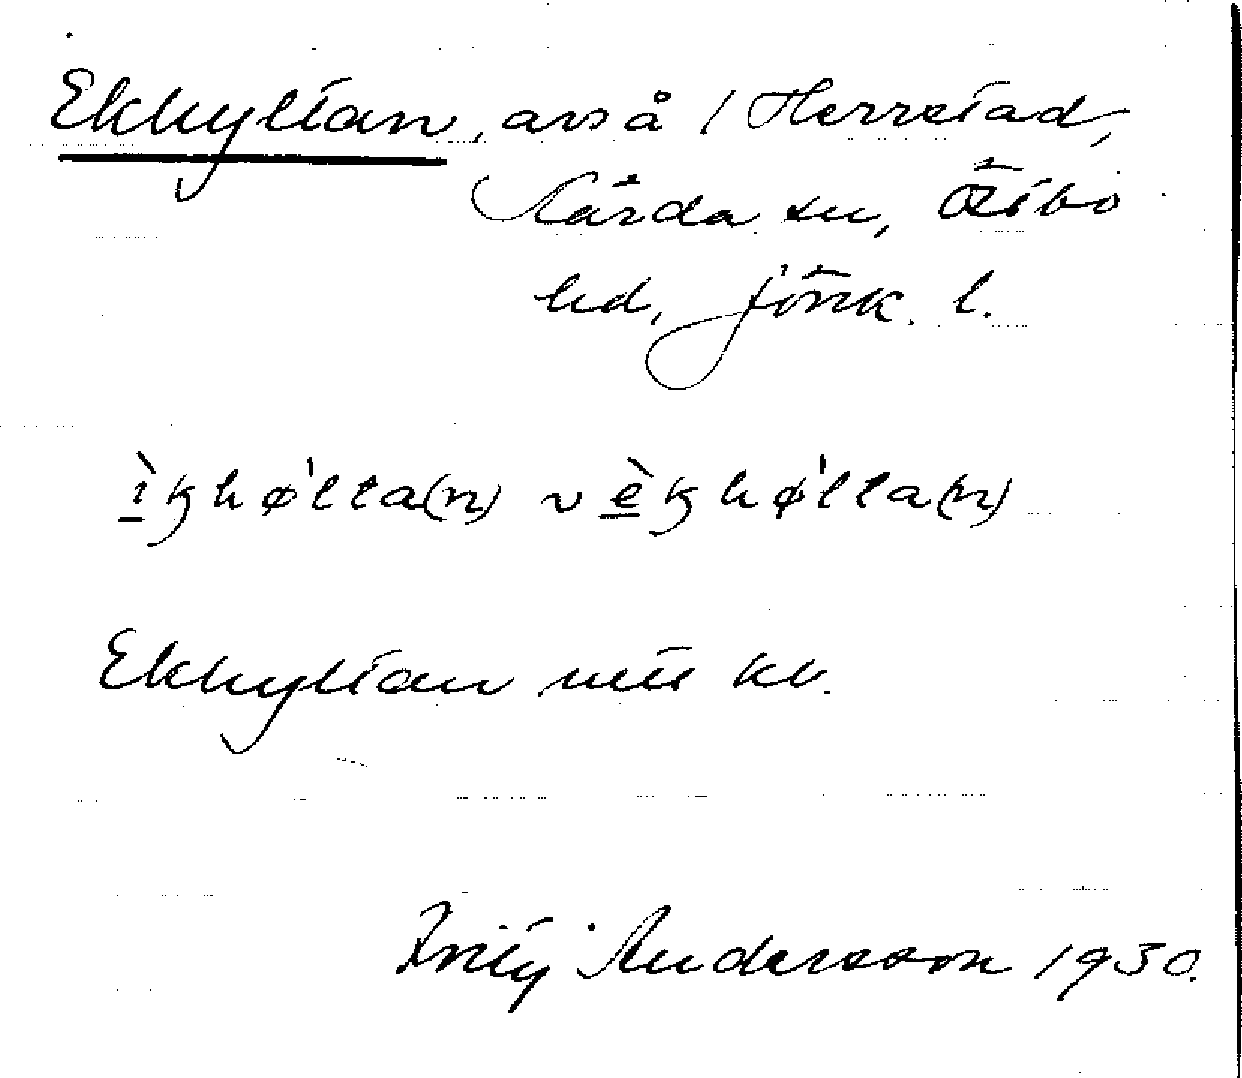 Ekhyltan, avs å / Herrestad,
Kärda sn, Östbo
hd, Jönk. l.
ìkhø'lta(n) ~ èkhø'lta(n)
Ekhyltan
Andersson 1930.